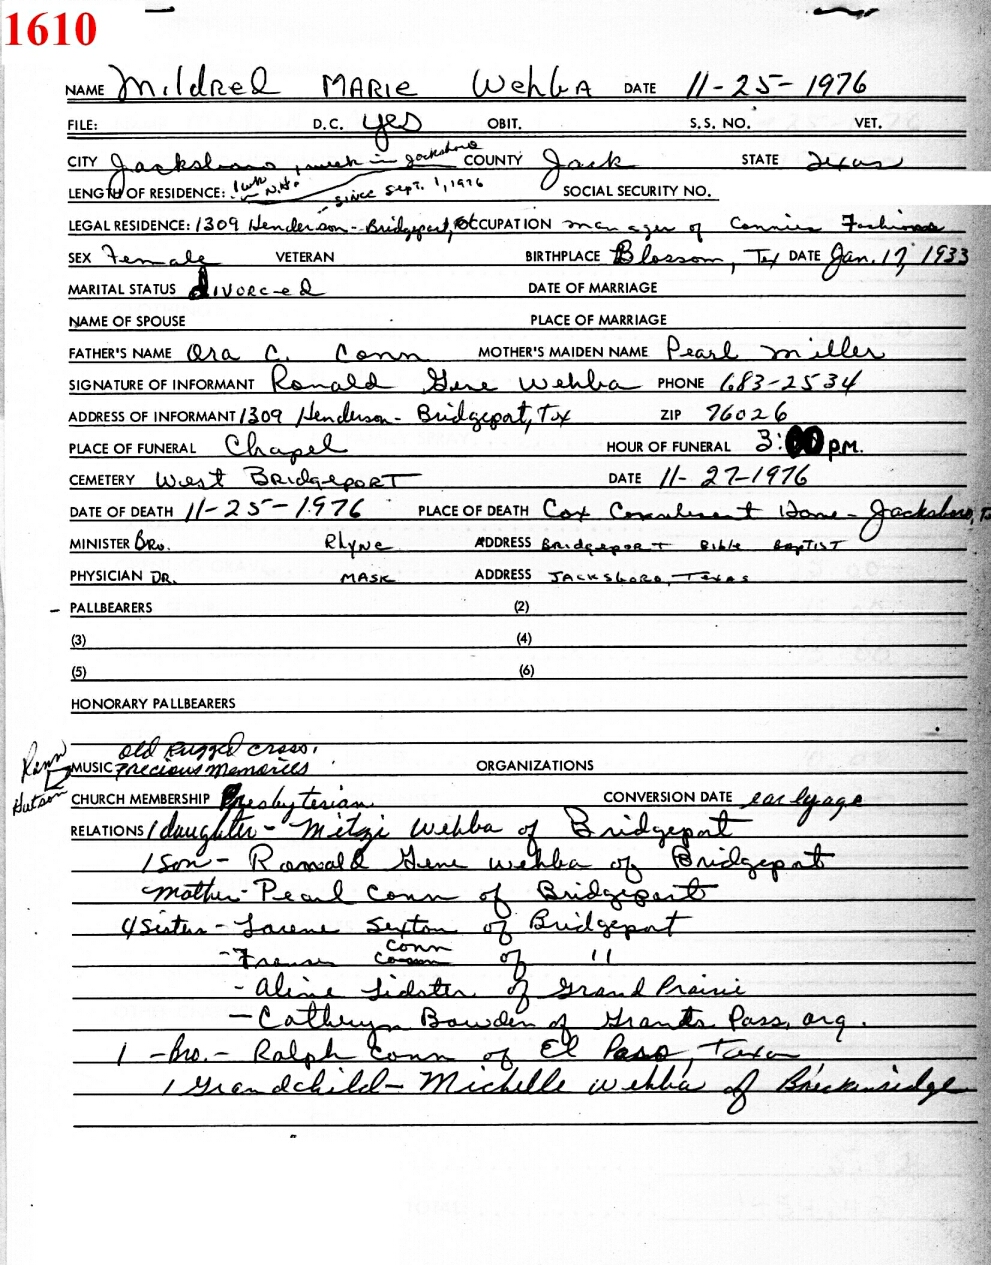 1610
NAME Mildred MARIE Wehba DATE 11-25-1976
FILE: D.C. yes OBIT. S.S. NO. VET.
CITY Jacksboro, week in Jacksboro COUNTY Jack STATE Texas
LENGTH OF RESIDENCE: 1 wk N.H. since Sept. 1, 1976 SOCIAL SECURITY NO.
LEGAL RESIDENCE: 1309 Henderson - Bridgeport, OCCUPATION manager of Fashions
SEX Female VETERAN BIRTHPLACE Blossom, Tx DATE Jan. 17, 1933
MARITAL STATUS divorced DATE OF MARRIAGE
NAME OF SPOUSE PLACE OF MARRIAGE
FATHER'S NAME Ora C. Conn MOTHER'S MAIDEN NAME Pearl Miller
SIGNATURE OF INFORMANT Ronald Gene Wehba PHONE 683-2534
ADDRESS OF INFORMANT 1309 Henderson - Bridgeport, Tx ZIP 76026
PLACE OF FUNERAL Chapel HOUR OF FUNERAL 3:00 P.M.
CEMETERY West Bridgeport DATE 11-27-1976
DATE OF DEATH 11-25-1976 PLACE OF DEATH Cox Convalesent Home - Jacksboro,
MINISTER Bro. Rhyne ADDRESS Bridgeport Bible Baptist
PHYSICIAN DR. MASK ADDRESS JACKSBORO, TEXAS
PALLBEARERS (2)
(3) (4)
(5) (6)
HONORARY PALLBEARERS
Old Rugged Cross,
MUSIC Precious Memories ORGANIZATIONS
Hutson
CHURCH MEMBERSHIP Presbyterian CONVERSION DATE early age
RELATIONS 1 daughter - Mitzi Wehba of Bridgeport
1 son - Ronald Gene Wehba of Bridgeport
Mother - Pearl Conn of Bridgeport
4 Sisters - Lorene Sexton of Bridgeport
- Conn of 11
- Aline Lidster of Grand Prairie
- Cathryn Bowden of Grants Pass, Org.
1 - Bro. - Ralph Conn of El Paso, Texas
1 Grandchild - Michelle Wehba of Breckenridge